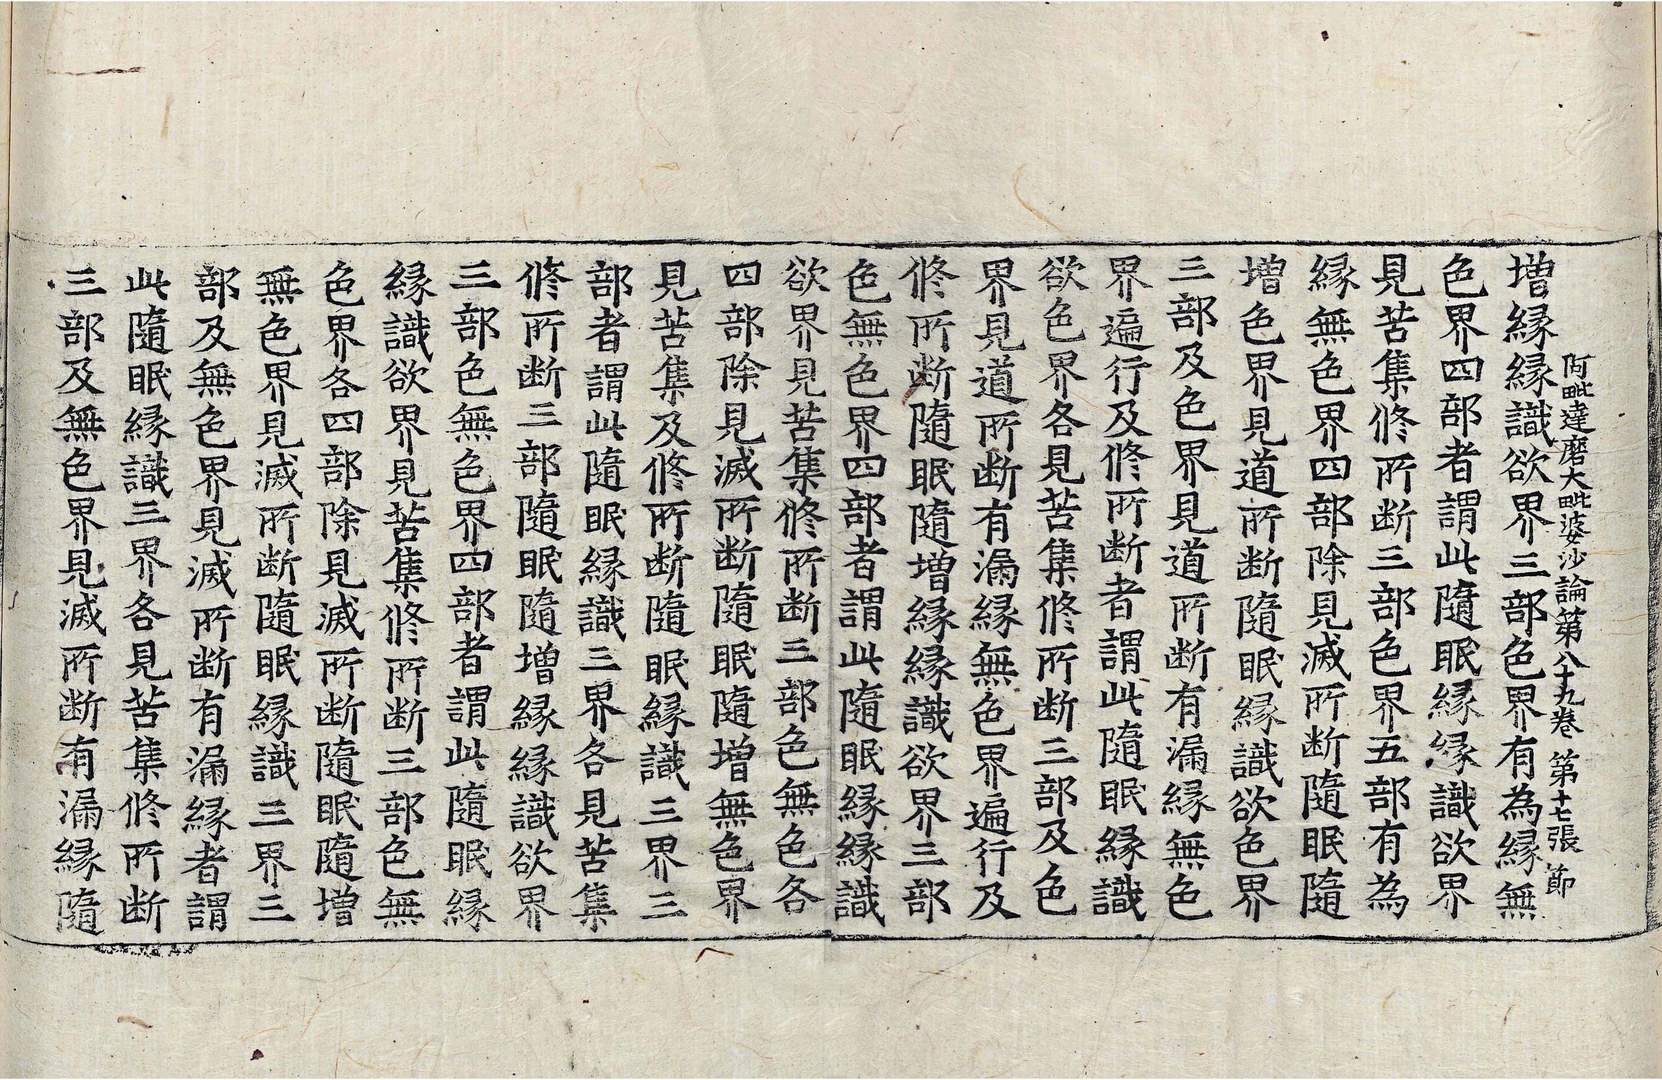 阿毗達磨大毗婆沙論第八十九卷 第十七張 節
增緣緣識欲界三部色界有為緣無
色界四部者謂此隨眠緣緣識欲界
見苦集修所斷三部色界五部有為
緣無色界四部除見滅所斷隨眠隨
增色界見道所斷隨眠緣識欲色界
三部及色界見道所斷有漏緣無色
界遍行及修所斷者謂此隨眠緣識
欲色界各見苦集修所斷三部及色
界見道所斷有漏緣無色界遍行及
修所斷隨眠隨增緣緣識欲界三部
色無色界四部者謂此隨眠緣緣識
欲界見苦集修所斷三部色無色各
四部除見滅所斷隨眠隨增無色界
見苦集及修所斷隨眠緣識三界三
部者謂此隨眠緣識三界各見苦集
修所斷三部隨眠隨增緣緣識欲界
三部色無色界四部者謂此隨眠緣
緣識欲界見苦集修所斷三部色無
色界各四部除見滅所斷隨眠隨增
無色界見滅所斷隨眠緣識三界三
部及無色界見滅所斷有漏緣者謂
此隨眠緣識三界各見苦集修所斷
三部及無色界見滅所斷有漏緣隨